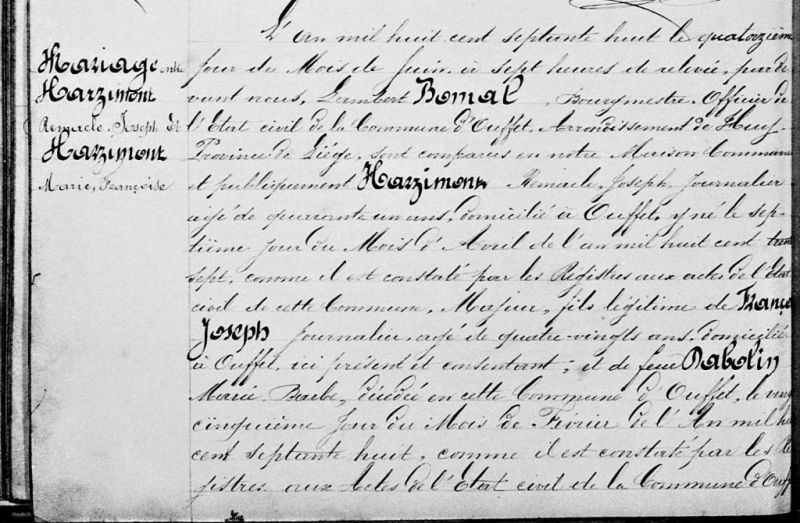 Mariage entre
Harzimont
Remacle, Joseph Et
Harzimont
Marie, Françoise
L'an mil huit cent septante huit le quatorzième
jour du Mois de Juin, à sept heures de relevée, par de
vant nous, Lambert Bomal, Bourgmestre, Officier de
l'Etat civil de la Commune d'Ouffet, Arrondissement de Huy,
Province de Liége, sont comparus en notre Maison Commune
et publiquement Harzimont Remacle, Joseph, Journalier
agé de quarante un ans, domicilié à Ouffet, y né le sep-
tième jour du Mois d'Avril de l'an mil huit cent trente
sept, comme il est constaté par les Registres aux actes de l'Etat
civil de cette Commune, Majeur, fils légitime de Franço
Joseph Journalier, agé de quatre-vingts ans, domicilié
à Ouffet, ici présent et consentant; et de feue Dabolin
Marie Barbe, décédée en cette Commune d'Ouffet, le ving
cinquième jour du Mois de Février de l'An mil hu
cent septante huit, comme il est constaté par les Re
gistres aux Actes de l'Etat civil de la Commune d'Ouff